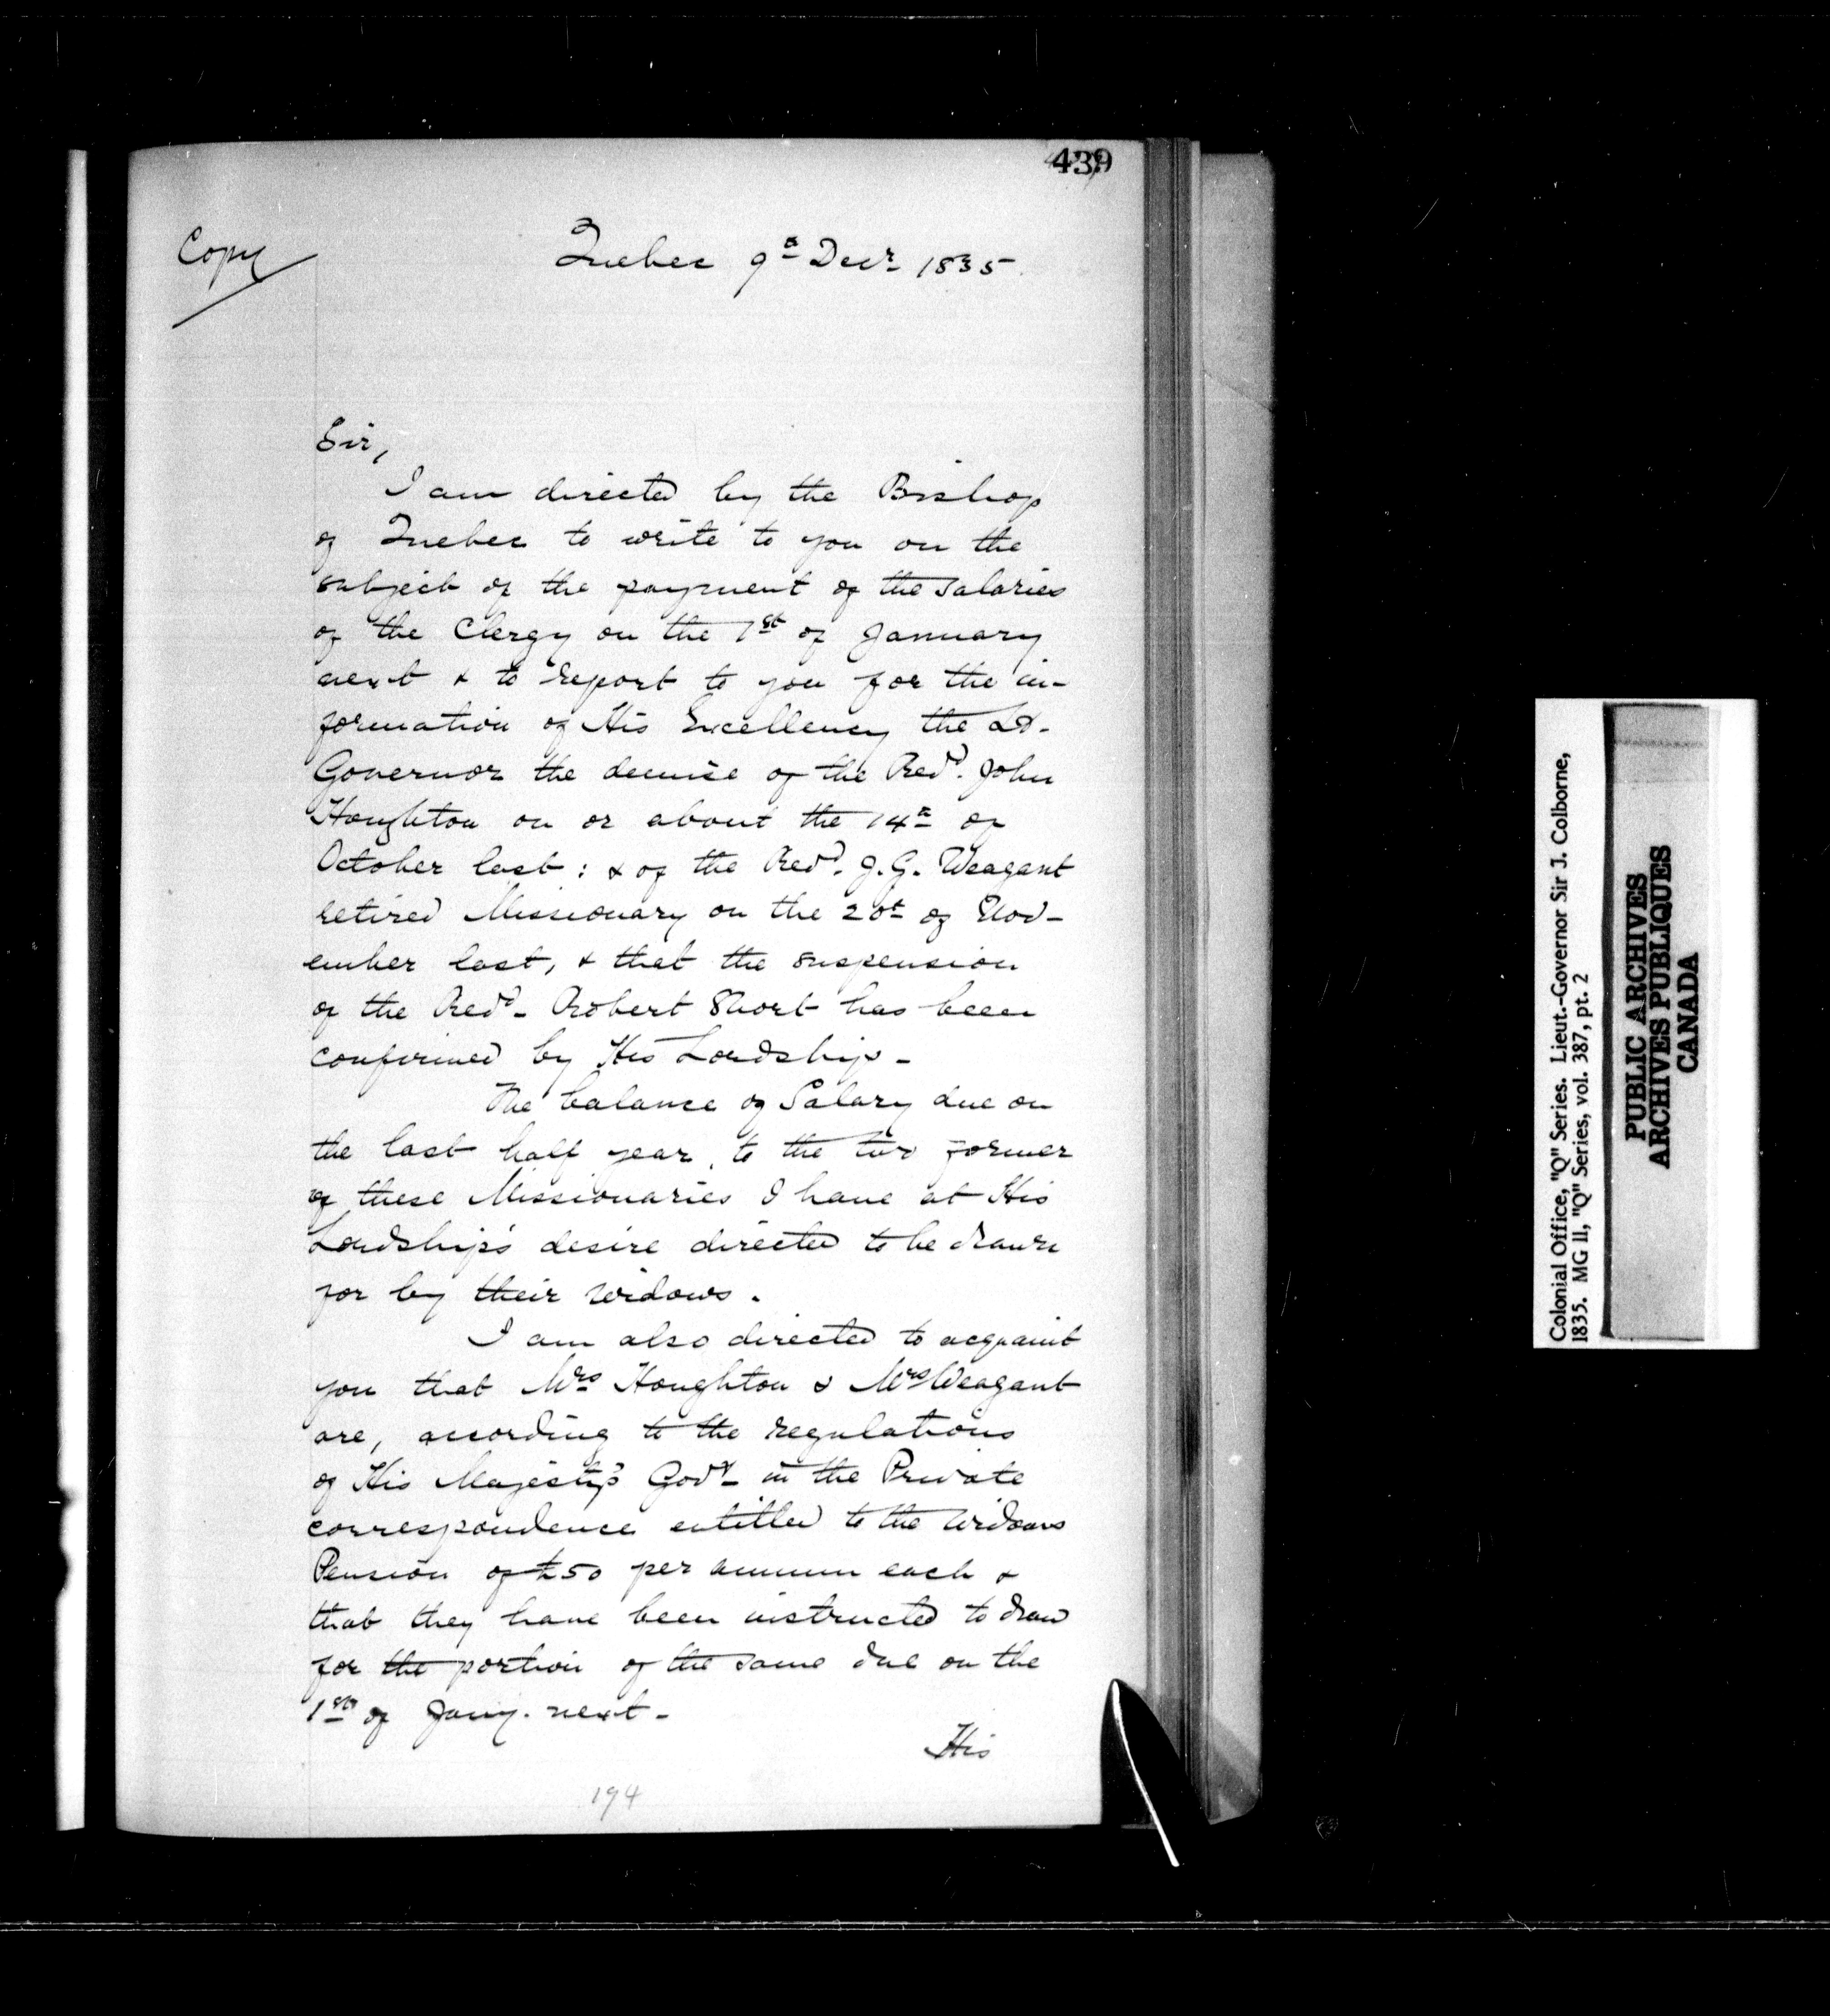 439
Copy
Quebec 9th Decr 1835.
Sir,
I am directed by the Bishop
of Quebec to write to you on the
subject of the payment of the salaries
of the Clergy on the 1st of January
next & to report to you for the in-
formation of His Excellency the Lt.
Governor the demise of the Revd. John
Houghton on or about the 14th of
October last: & of the Revd. J. G. Weagant
retired Missionary on the 20th of Nov-
ember last, & that the suspension
of the Revd. Robert Short has been
confirmed by His Lordship -
The balance of Salary due on
the last half year, to the two former
of these Missionaries I have at His
Lordship's desire directed to be drawn
for by their widows.
I am also directed to acquaint
you that Mrs Houghton & Mrs Weagant
are, according to the regulations
of His Majesty's Govt - in the Private
correspondence entitled to the widows
Pension of £50 per annum each &
that they have been instructed to draw
for the portion of the same due on the
1st of Jany. next -
His
194
Colonial Office, "Q" Series. Lieut.-Governor Sir J. Colborne,
1835. MG 11, "Q" Series, vol. 387, pt. 2
PUBLIC ARCHIVES
ARCHIVES PUBLIQUES
CANADA